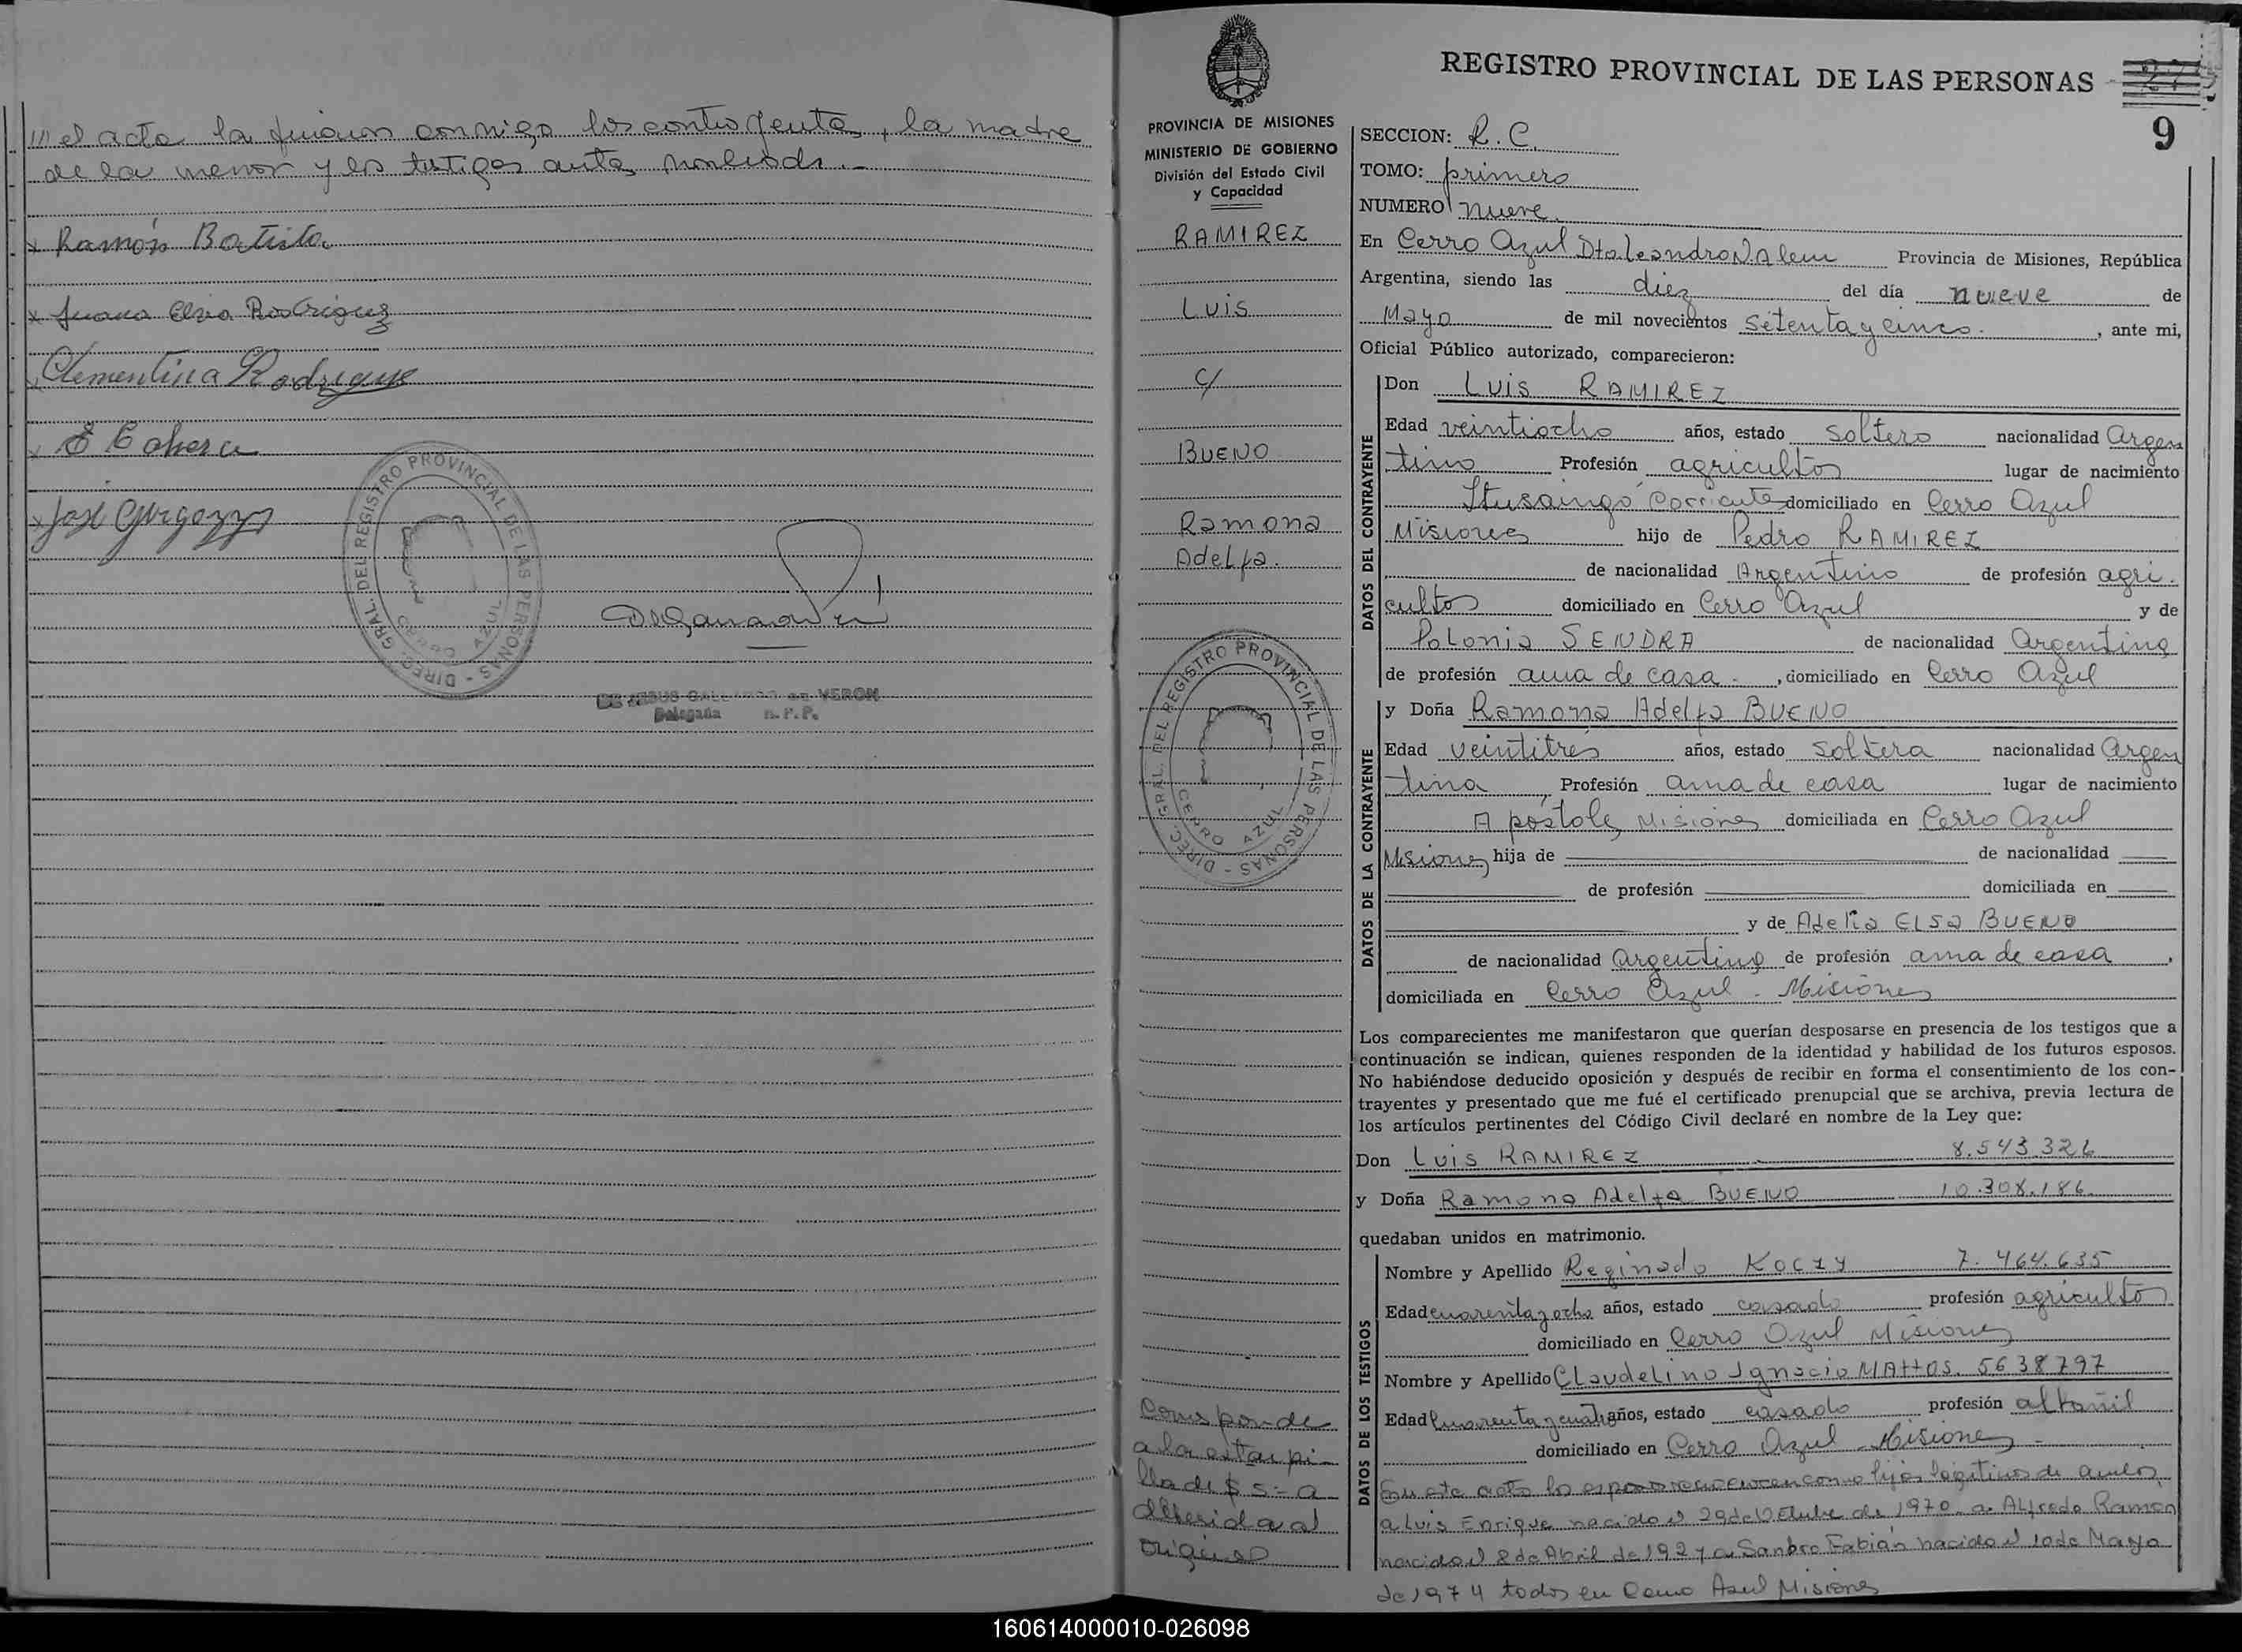 /// el acto la firman conmigo los contrayentes, la madre
de la menor y los testigos antes nombrados.-
x Ramón Batista
x Juana Elva Rodriguez
Clementina Rodriguez
x José
DIREC. GRAL. DEL REGISTRO PROVINCIAL DE LAS PERSONAS
CERRO AZUL
DE JESUS GALLARDO de VERON
Delegada R.P.P.
PROVINCIA DE MISIONES
MINISTERIO DE GOBIERNO
División del Estado Civil
y Capacidad
RAMIREZ
Luis
c/
BUENO
Ramona
Adelfa.
DIREC. GRAL. DEL REGISTRO PROVINCIAL DE LAS PERSONAS
CERRO AZUL
Corresponde
a la estampi-
lla de $ 5 = a
dherida al
original
REGISTRO PROVINCIAL DE LAS PERSONAS
9
SECCION: R.C.
TOMO: primero
NUMERO nueve.
En Cerro Azul Dto. Leandro N Alem Provincia de Misiones, República
Argentina, siendo las diez del día nueve de
Mayo de mil novecientos setenta y cinco. , ante mi,
Oficial Público autorizado, comparecieron:
DATOS DEL CONTRAYENTE
Don Luis RAMIREZ
Edad veintiocho años, estado soltero nacionalidad Argen
tino Profesión agricultor lugar de nacimiento
Ituzaingó Corrientes domiciliado en Cerro Azul
Misiones hijo de Pedro RAMIREZ
de nacionalidad Argentino de profesión agri.
cultor domiciliado en Cerro Azul y de
Polonia SENDRA de nacionalidad Argentina
de profesión ama de casa. , domiciliado en Cerro Azul
DATOS DE LA CONTRAYENTE
y Doña Ramona Adelfa BUENO
Edad veintitres años, estado soltera nacionalidad Argen
tina Profesión ama de casa lugar de nacimiento
Apóstoles Misiones domiciliada en Cerro Azul
Misiones hija de de nacionalidad
de profesión domiciliada en
y de Adelia Elsa BUENO
de nacionalidad argentina de profesión ama de casa ,
domiciliada en Cerro Azul. Misiones
Los comparecientes me manifestaron que querían desposarse en presencia de los testigos que a
continuación se indican, quienes responden de la identidad y habilidad de los futuros esposos.
No habiéndose deducido oposición y después de recibir en forma el consentimiento de los con-
trayentes y presentado que me fué el certificado prenupcial que se archiva, previa lectura de
los artículos pertinentes del Código Civil declaré en nombre de la Ley que:
Don Luis RAMIREZ 8.543.326
y Doña Ramona Adelfa BUENO 10.308.186
quedaban unidos en matrimonio.
DATOS DE LOS TESTIGOS
Nombre y Apellido Reginado KOCZY 7.464.635
Edad cuarenta y ocho años, estado casado profesión agricultor
domiciliado en Cerro Azul Misiones
Nombre y Apellido Claudelino Ignacio MAttos. 5638797
Edad cuarenta y cuatro años, estado casado profesión albañil
domiciliado en Cerro Azul - Misiones -
En este acto los esposos reconocen como hijos legitimos de ambos
a Luis Enrique nacido el 29 de Octubre de 1970 a Alfredo Ramón
nacido el 8 de Abril de 1972 y a Sandro Fabián nacido el 10 de Mayo
de 1974 todos en Cerro Azul Misiones
160614000010-026098